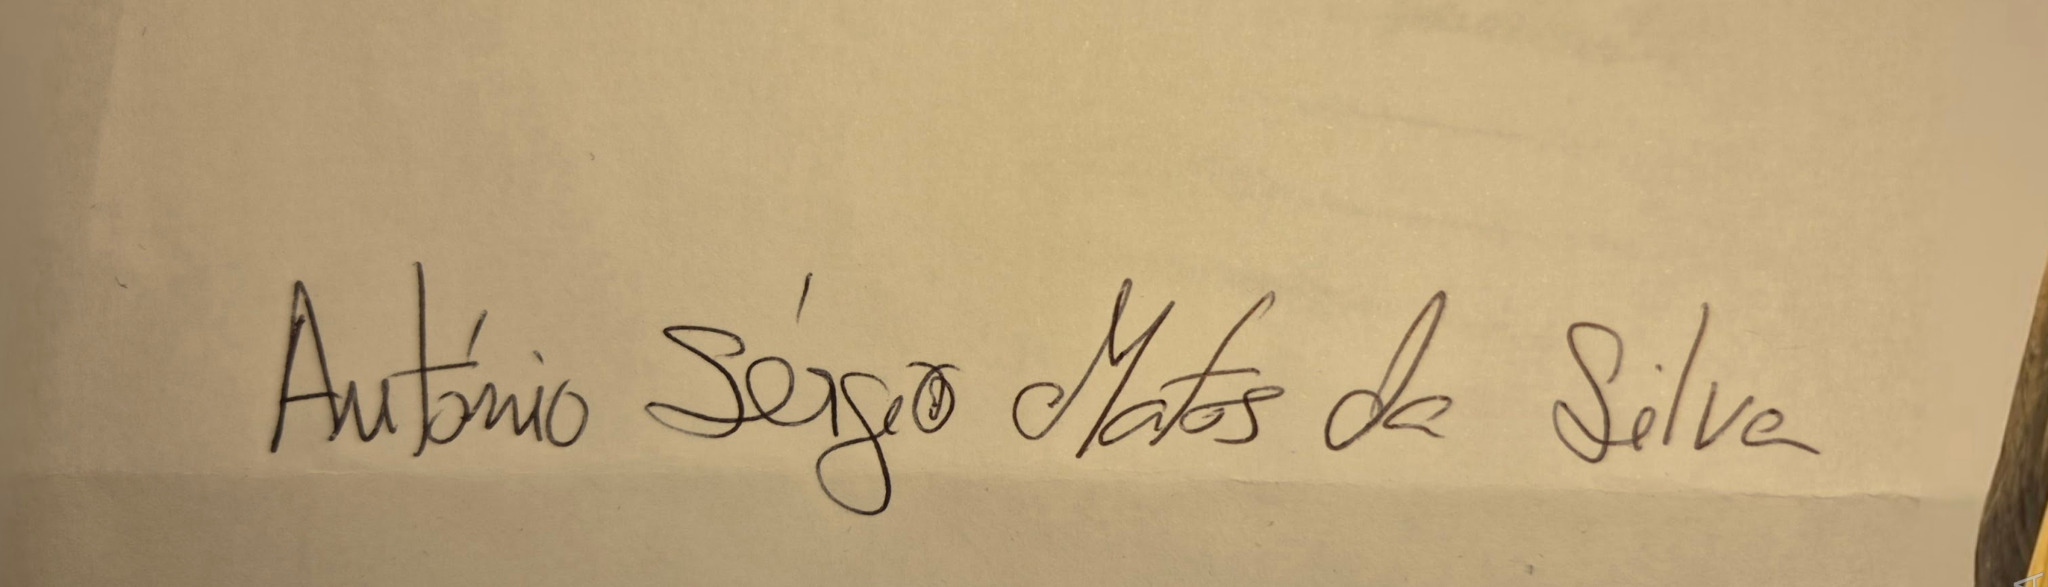 António Sérgio Matos da Silva